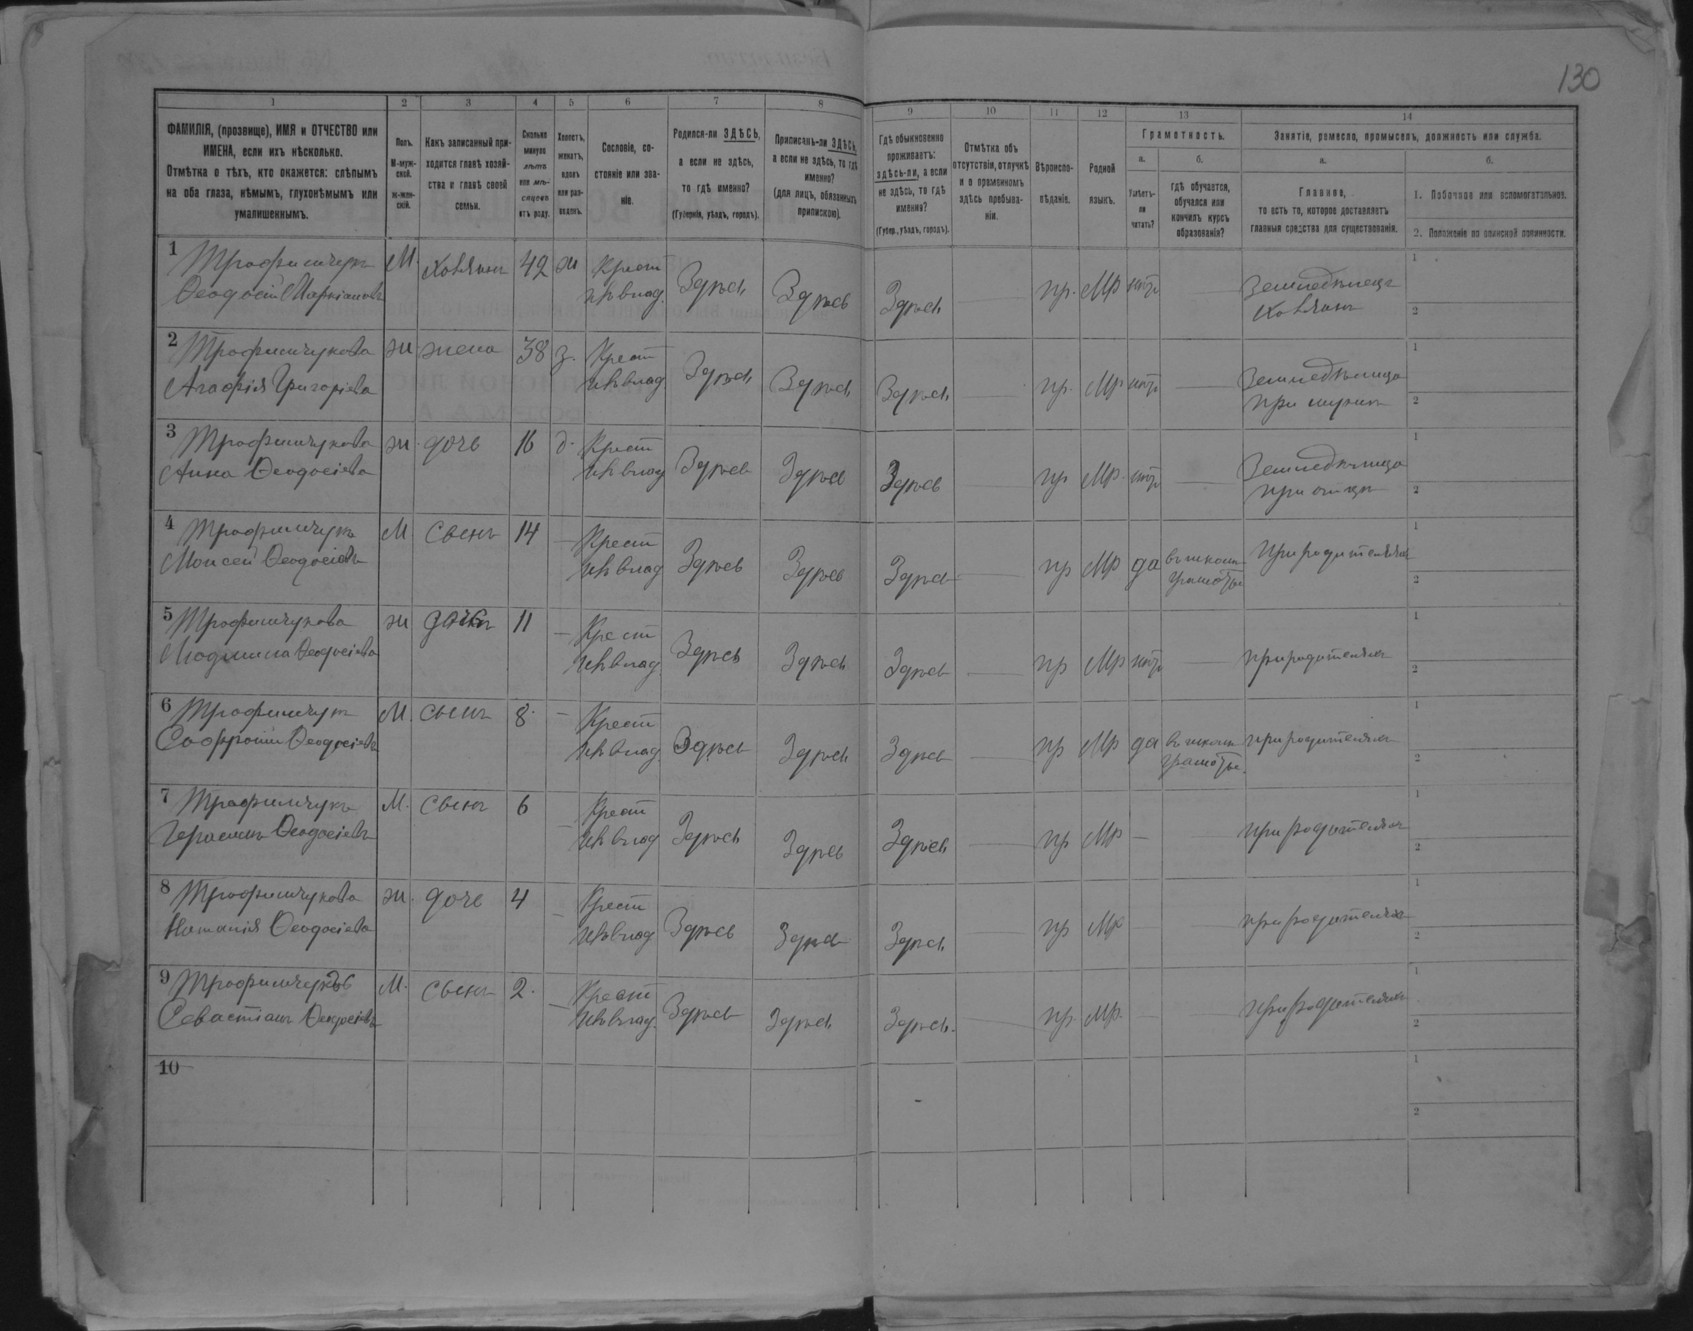 130
1 2 3 4 5 6 7 8 9 10 11 12 13 14
ФАМИЛІЯ, (прозвище), ИМЯ и ОТЧЕСТВО или
ИМЕНА, если ихъ нѣсколько.
Отмѣтка о тѣхъ, кто окажется: слѣпымъ
на оба глаза, нѣмымъ, глухонѣмымъ или
умалишеннымъ.
Полъ.
М-муж-
ской.
ж-жен-
скій.
Какъ записанный при-
ходится главѣ хозяй-
ства и главѣ своей
семьи.
Сколько
минуло
лѣтъ
или мѣ-
сяцевъ
отъ роду.
Холостъ,
женатъ,
вдовъ
или раз-
веденъ.
Сословіе, со-
стояніе или зва-
ніе.
Родился-ли ЗДѢСЬ,
а если не здѣсь,
то гдѣ именно?
(Губернія, уѣздъ, городъ).
Приписанъ-ли ЗДѢСЬ,
а если не здѣсь, то гдѣ
именно?
(для лицъ, обязанныхъ
припискою).
Гдѣ обыкновенно
проживаетъ:
здѣсь-ли, а если
не здѣсь, то гдѣ
именно?
(Губер., уѣздъ, городъ).
Отмѣтка объ
отсутствіи, отлучкѣ
и о временномъ
здѣсь пребыва-
ніи.
Вѣроиспо-
вѣданіе.
Родной
языкъ.
Грамотность.
а.
Умѣетъ-
ли
читать?
б.
Гдѣ обучается,
обучался или
кончилъ курсъ
образованія?
Занятіе, ремесло, промыселъ, должность или служба.
а.
Главное,
то есть то, которое доставляетъ
главныя средства для существованія.
б.
1. Побочное или вспомогательное.
2. Положеніе по воинской повинности.
1 Трофимчукъ М. хозяинъ 42 ж Крест Здѣсь Здѣсь Здѣсь пр. Мр нѣтъ Земледѣлецъ 1
Ѳеодосій хозяинъ 2
2 Трофимчукова ж жена 38 з. Крест Здѣсь Здѣсь Здѣсь пр. Мр нѣтъ Земледѣлица 1
Агафія Григоріева при мужѣ 2
3 Трофимчукова ж. дочь 16 д. Крест Здѣсь Здѣсь Здѣсь пр Мр. нѣтъ Земледѣлица 1
Анна Ѳеодосіева при отцѣ 2
4 Трофимчукъ М сынъ 14 Крест Здѣсь Здѣсь Здѣсь пр Мр да въ школѣ При родителяхъ 1
Моисей Ѳеодосіевъ грамоты 2
5 Трофимчукова ж дочь 11 Крест Здѣсь Здѣсь Здѣсь пр Мр нѣтъ при родителяхъ 1
Людмила Ѳеодосіева 2
6 Трофимчукъ М. сынъ 8. Крест Здѣсь Здѣсь Здѣсь пр Мр да въ школѣ при родителяхъ 1
Софроній Ѳеодосіевъ грамоты. 2
7 Трофимчукъ М. сынъ 6 Крест Здѣсь Здѣсь Здѣсь пр Мр при родителяхъ 1
Герасимъ Ѳеодосіевъ 2
8 Трофимчукова ж. дочь 4 Крест Здѣсь Здѣсь Здѣсь пр Мр при родителяхъ 1
Наталія Ѳеодосіева 2
9 М. сынъ 2. Крест Здѣсь Здѣсь Здѣсь. пр. Мр. при родителяхъ 1
Севастіанъ Ѳеодосіевъ 2
10 1
2